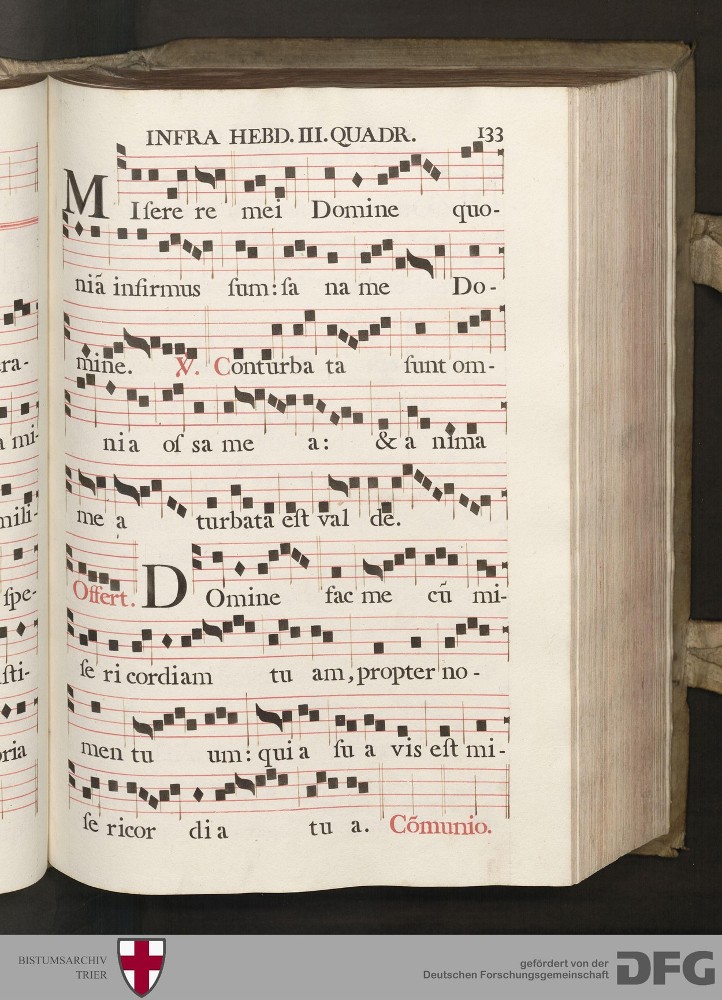 INFRA HEBD. III. QUADR. 133
MIſere re mei Domine quo-
niã infirmus ſum: ſa na me Do-
mine. V. Conturba ta ſunt om-
nia oſ sa me a: & a nima
me a turbata eſt val de.
Offert. DOmine fac me cũ mi-
ſe ri cordiam tu am, propter no-
men tu um: qui a ſu a vis eſt mi-
ſe ricor di a tu a. Cõmunio.
ra-
a mi-
mili-
ſpe-
ſti-
oria
BISTUMSARCHIV
TRIER
gefördert von der
Deutschen Forschungsgemeinschaft
DFG